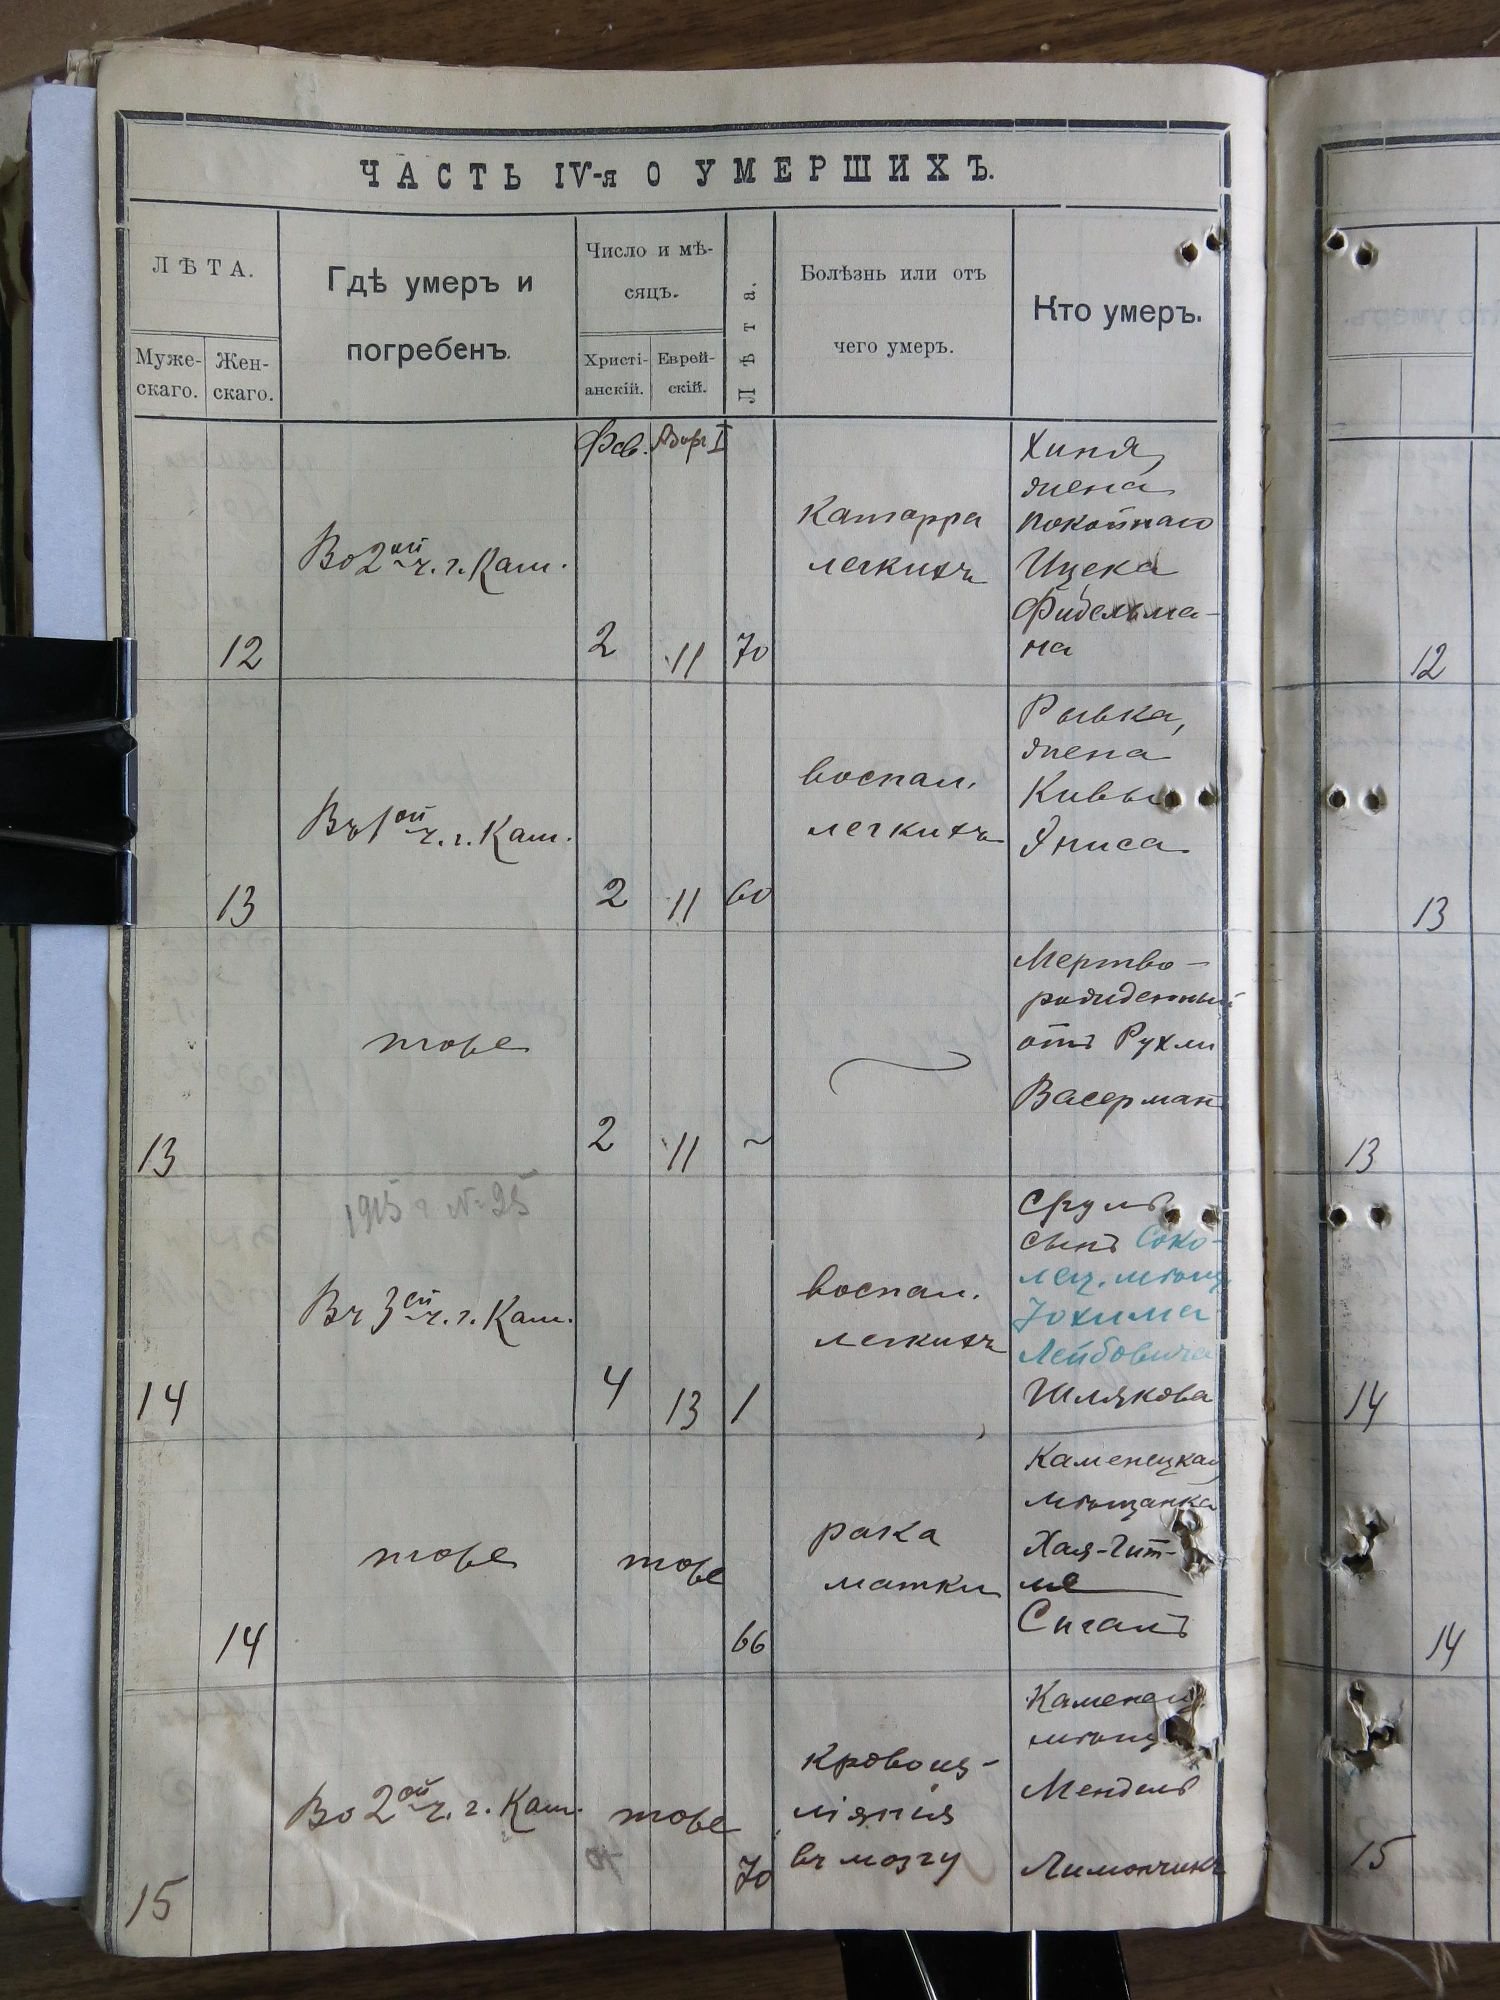 ЧАСТЬ IV-я О УМЕРШИХЪ.
ЛѢТА.
Муже-
скаго.
Жен-
скаго.
Гдѣ умеръ и
погребенъ.
Число и мѣ-
сяцъ.
Христі-
анскій.
Еврей-
скій.
Лѣта.
Болѣзнь или отъ
чего умеръ.
Кто умеръ.
Фев.
12
Во 2ой ч. г. Кам.
2
11
70
Катарра
легкихъ
Хиня,
жена
покойнаго
Ицека
Фидельма-
на
13
Въ 1ой ч. г. Кам.
2
11
60
воспал.
легкихъ
Рывка,
жена
Кивы
13
тоже
2
11
Мертво-
рожденный
отъ Рухли
Васерманъ
1915 г № 25
14
Въ 3ей ч. г. Кам.
4
13
1
воспал.
легкихъ
Сруль
сынъ Соко-
лец. мѣщ.
Іохима
Лейбовича
Шлякова
14
тоже
тоже
66
рака
матки
Каменецкая
мѣщанка
Хая-Гит-
ля
Сигалъ
15
Во 2ой ч. г. Кам.
тоже
70
кровоиз-
ліянія
въ мозгу
Каменец.
мѣщ.
Мендель
Лимончикъ
12
13
13
14
14
15